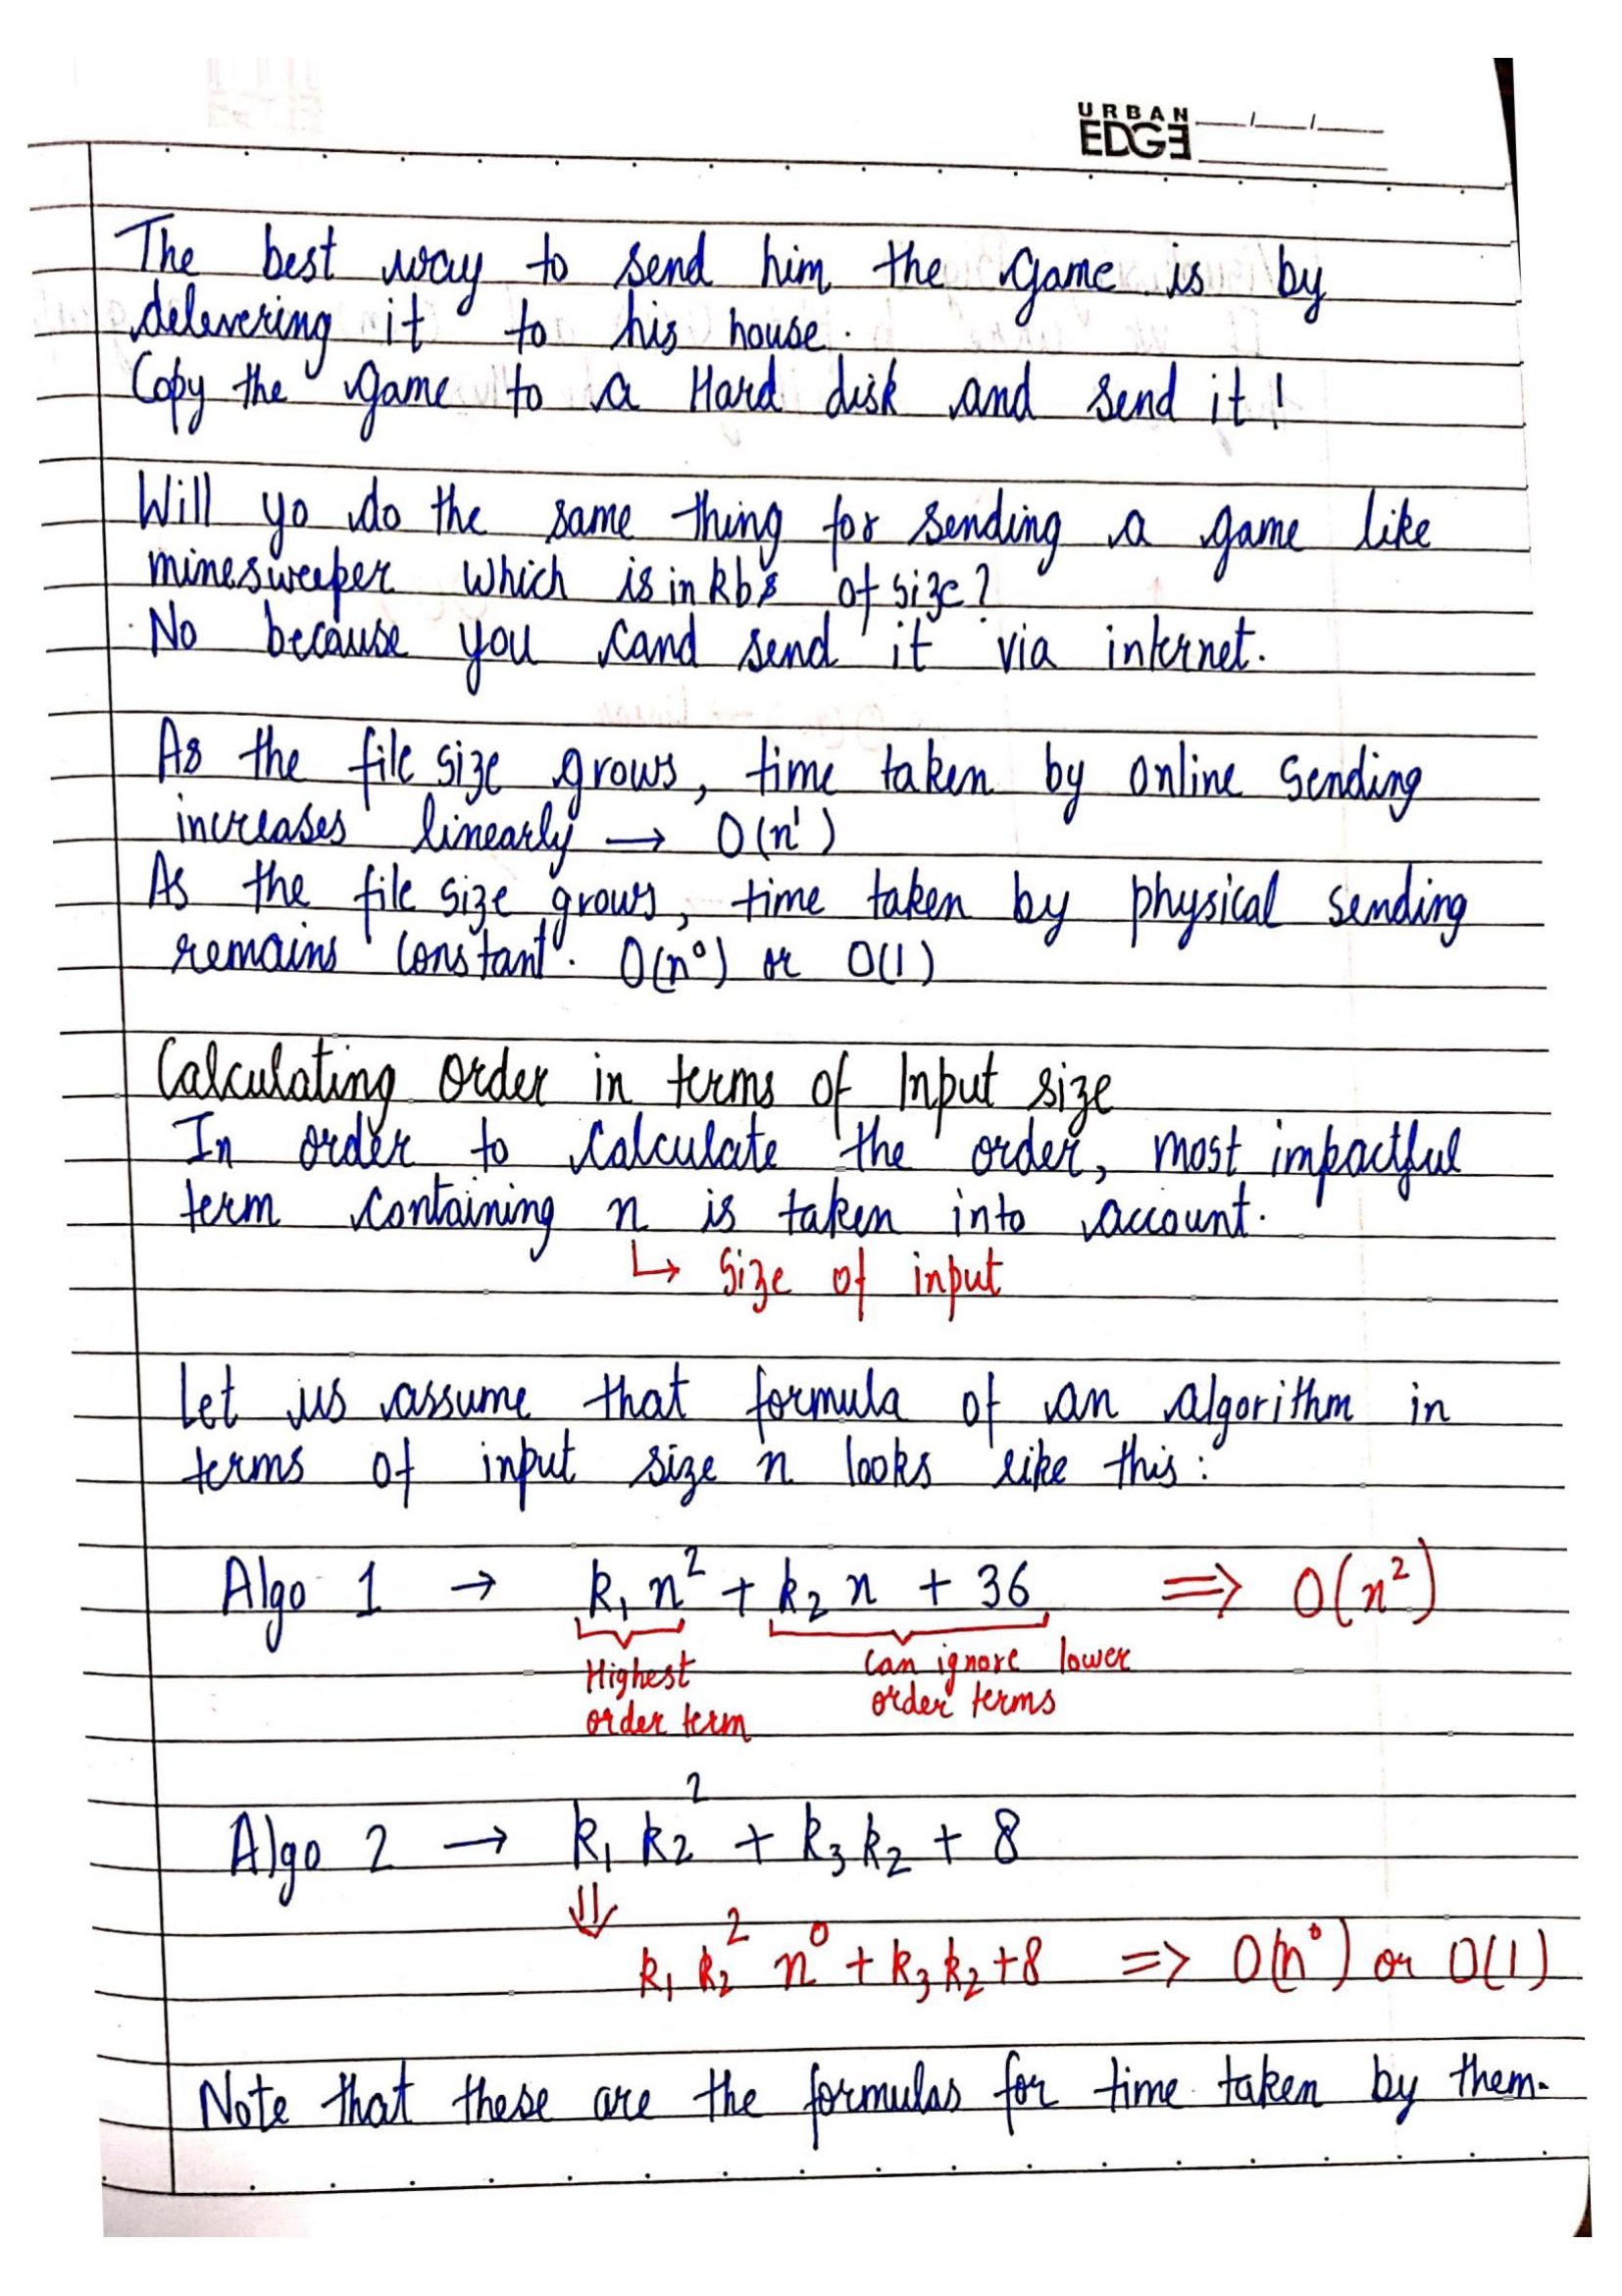 URBAN
EDGE __/__/__
The best way to send him the game is by
delevering it to his house.
Copy the game to a Hard disk and send it!
Will yo do the same thing for sending a game like
minesweeper which is in kbs of size?
No because you cand send it via internet.
As the file size grows, time taken by online sending
increases linearly → O(n¹)
As the file size grows, time taken by physical sending
remains constant. O(n⁰) or O(1)
Calculating Order in terms of Input size
In order to calculate the order, most impactful
term containing n is taken into account.
↳ Size of input
Let us assume that formula of an algorithm in
terms of input size n looks like this:
Algo 1 → k₁n² + k₂n + 36 ⇒ O(n²)
Highest can ignore lower
order term order terms
Algo 2 → k₁k₂² + k₃k₂ + 8
⇓
k₁k₂² n⁰ + k₃k₂+8 => O(n⁰) or O(1)
Note that these are the formulas for time taken by them.